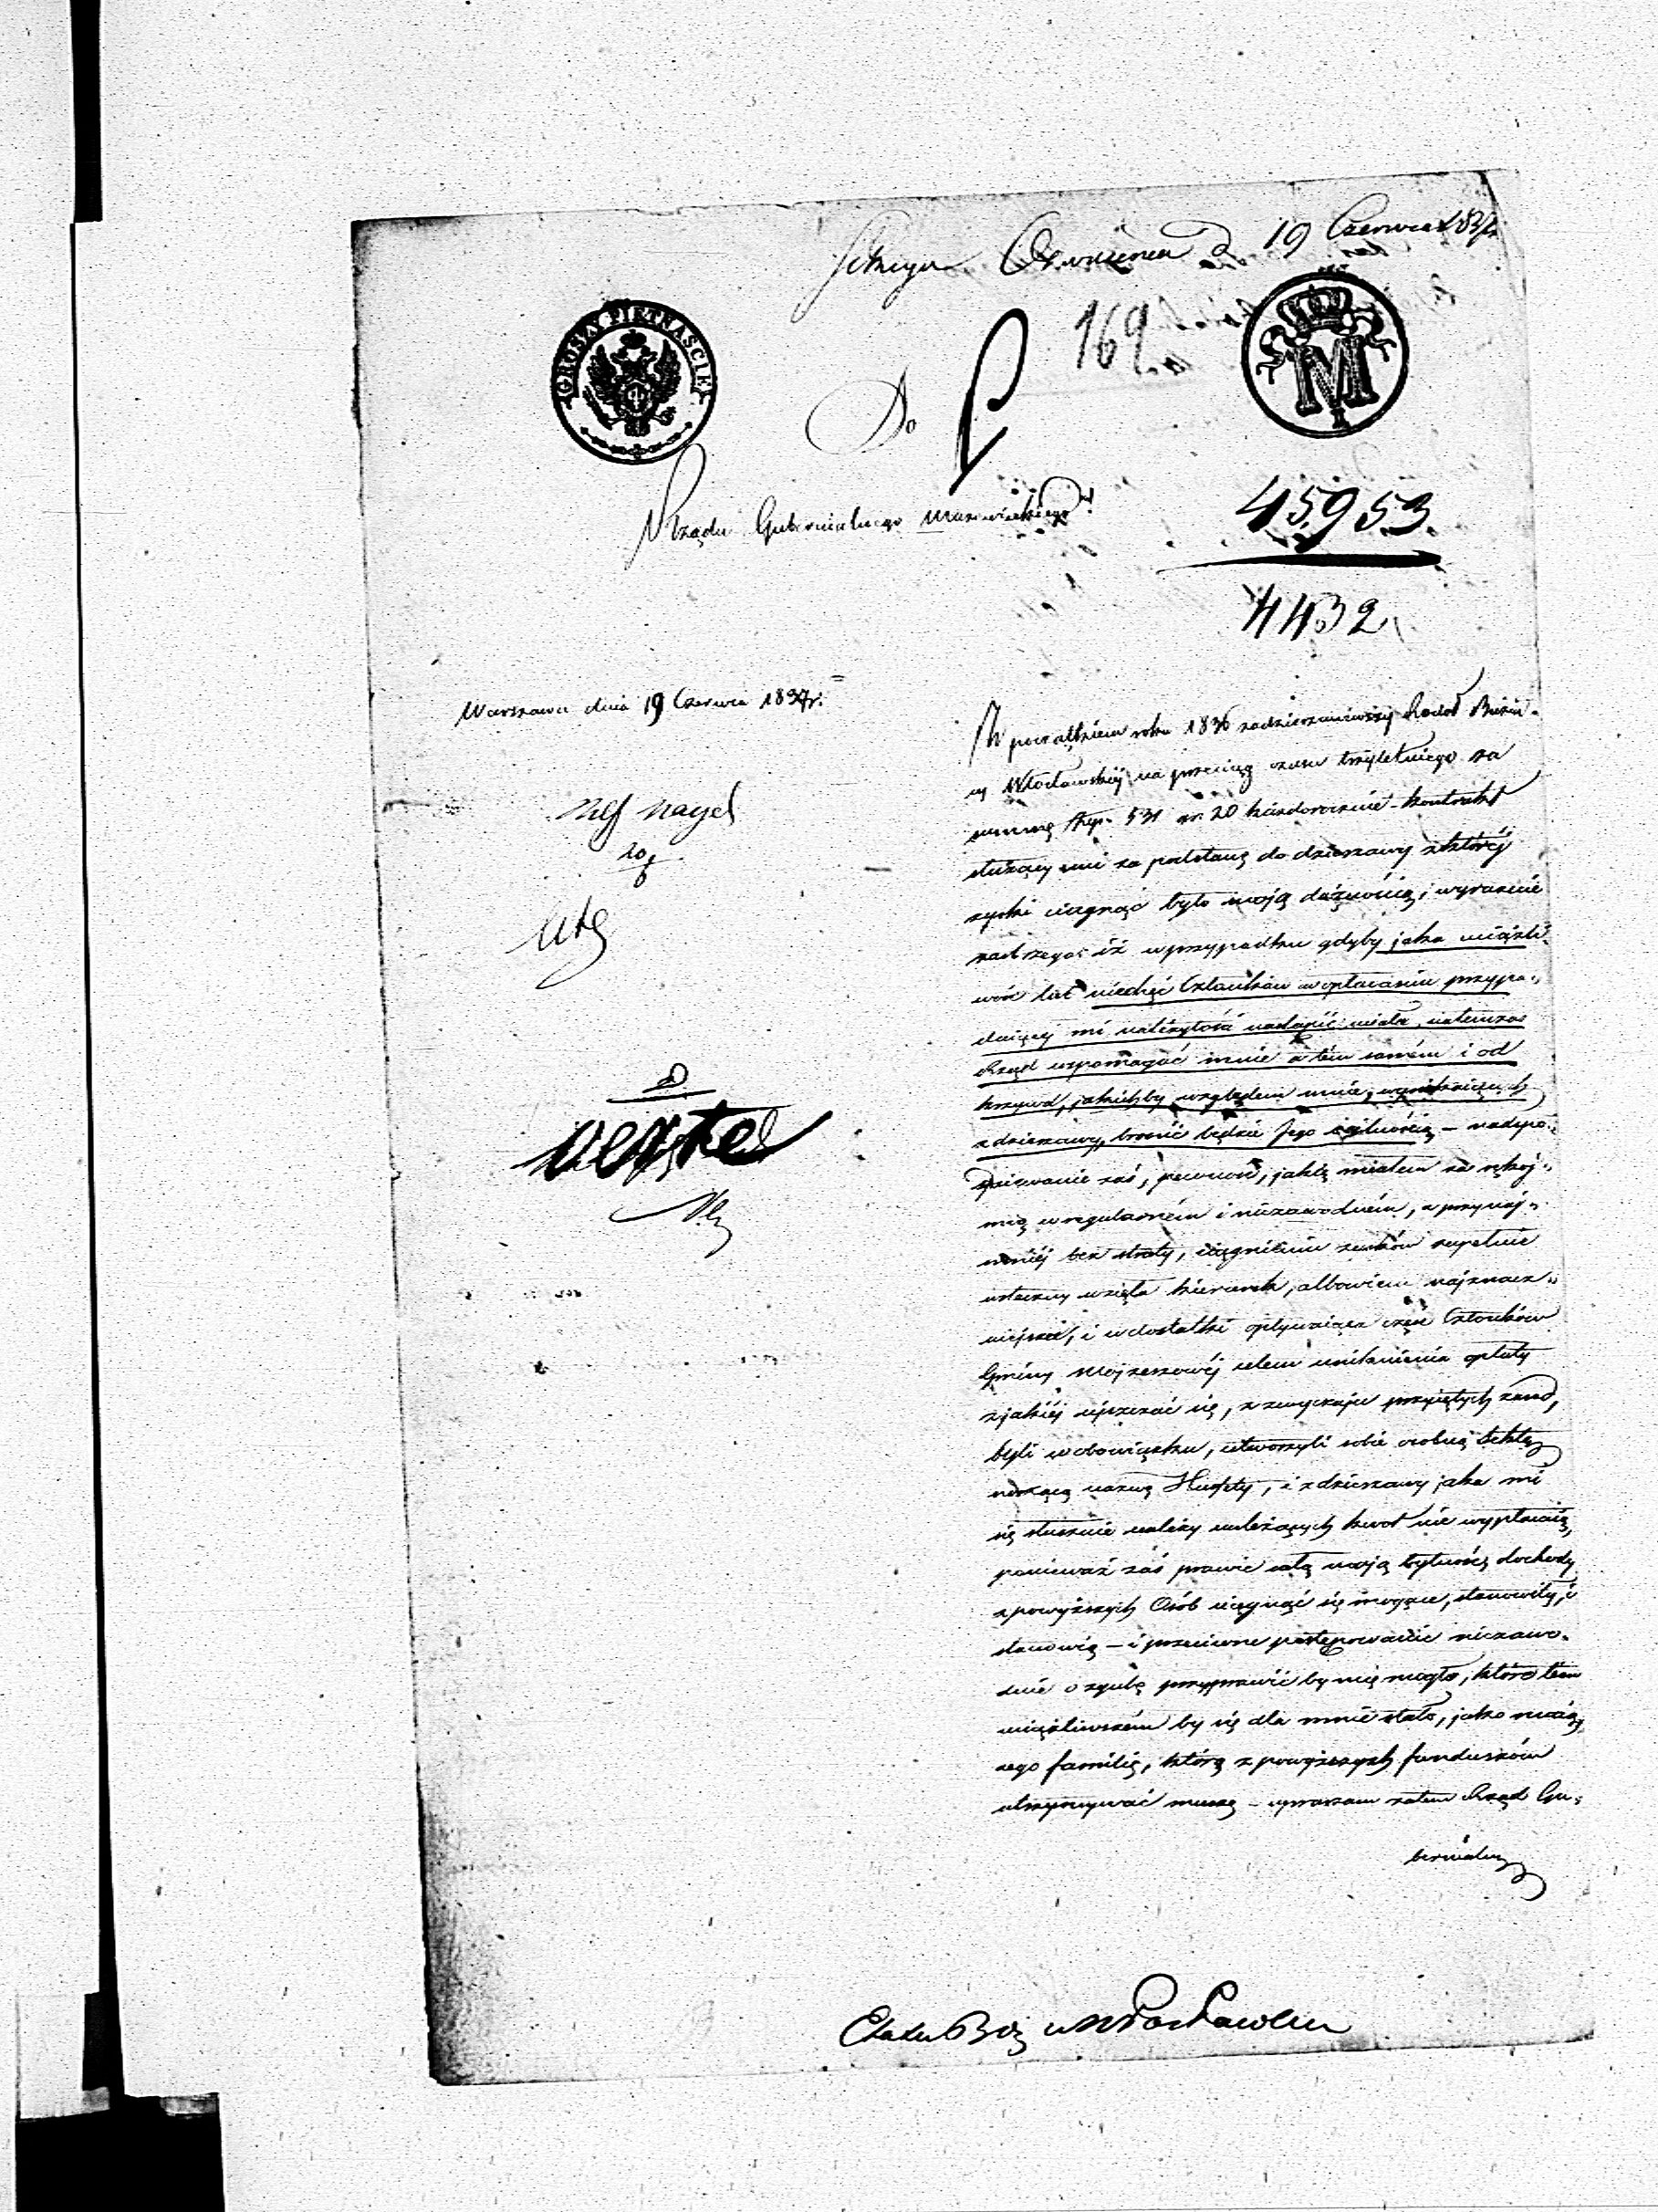 19 Czerwca 1837
GROSZY PIĘTNAŚCIE
169
Do
Rządu Gubernialnego Mazowieckiego
45953.
4432
Warszawa dnia 19 Czerwca 1837 r.
W początkiem roku 1836 zadzierzawiwszy Dochod Bużni-
cy Włocławskiej na przeciąg czasu trzyletniego za
summę złp. 531 gr. 20 każdorocznie – kontrakt
służący mi za podstawę do dzierzawy z której
zyski ciągnąć było moją dążnością, wyraźnie
zastrzega iż w przypadku gdyby jaka uciążli-
wość lub niechęć Członków w opłacaniu przypa-
dającej mi należytości nastąpić miała, natenczas
Rząd wspomagać mnie a tém samém i od
krzywd, jakichby względem mnie, wynikających
z dzierzawy, bronić będzie Jego
zaś, pewność, jaką miałem za rękoj-
mię w regularném i niezawodném, a przynaj-
mniéj bez straty, ciągnieniu zysków zupełnie
wsteczny wzięła kierunek, albowiem najznacz-
niejsza, i w dostatki opływająca część Członków
Gminy Mojzeszowéj celem uniknienia opłaty
z jakiéj uiszczać się, z zwyczaju przyjętych zasad,
byli w obowiązku, utworzyli sobie osobną sektę
noszącą nazwę Hussyty, i z dzierzawy jaka mi
się słusznie należy należących kwot nie wypłacają,
ponieważ zaś prawie całą moją bytność dochody
z powyższych Osób ciągnąć się mogące, stanowiły, i
stanowią – i przeciwne postępowanie niezawo-
dnie o zgubę przyprawić by mię mogło, które tém
uciążliwszém by się dla mnie stało, jako mają-
cego familię, którą z powyższych funduszów
utrzymywać muszę – upraszam zatem Rząd Gu-
bernialny